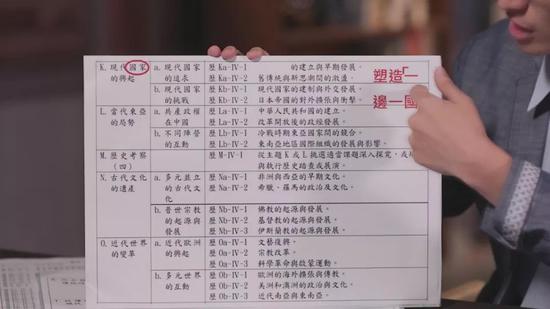 K. 現代國家的興起 a. 現代國家的追求 歷 Ka-Ⅳ-1 的建立與早期發展。
歷 Ka-Ⅳ-2 舊傳統與新思潮間的激盪。
b. 現代國家的挑戰 歷 Kb-Ⅳ-1 現代國家的建制與外交發展。
歷 Kb-Ⅳ-2 日本帝國的對外擴張與衝擊。
L. 當代東亞的局勢 a. 共產政權在中國 歷 La-Ⅳ-1 中華人民共和國的建立。
歷 La-Ⅳ-2 改革開放後的政經發展。
b. 不同陣營的互動 歷 Lb-Ⅳ-1 冷戰時期東亞國家間的競合。
歷 Lb-Ⅳ-2 東南亞地區國際組織的發展與影響。
M. 歷史考察(四) 歷 M-Ⅳ-1 從主題 K 或 L 挑選適當課題深入探究,或
與執行歷史踏查或展演。
N. 古代文化的遺產 a. 多元並立的古代文化 歷 Na-Ⅳ-1 非洲與西亞的早期文化。
歷 Na-Ⅳ-2 希臘、羅馬的政治及文化。
b. 普世宗教的起源與發展 歷 Nb-Ⅳ-1 佛教的起源與發展。
歷 Nb-Ⅳ-2 基督教的起源與發展。
歷 Nb-Ⅳ-3 伊斯蘭教的起源與發展。
O. 近代世界的變革 a. 近代歐洲的興起 歷 Oa-Ⅳ-1 文藝復興。
歷 Oa-Ⅳ-2 宗教改革。
歷 Oa-Ⅳ-3 科學革命與啟蒙運動。
b. 多元世界的互動 歷 Ob-Ⅳ-1 歐洲的海外擴張與傳教。
歷 Ob-Ⅳ-2 美洲和澳洲的政治與文化。
歷 Ob-Ⅳ-3 近代南亞與東南亞。
塑造「一
邊一國